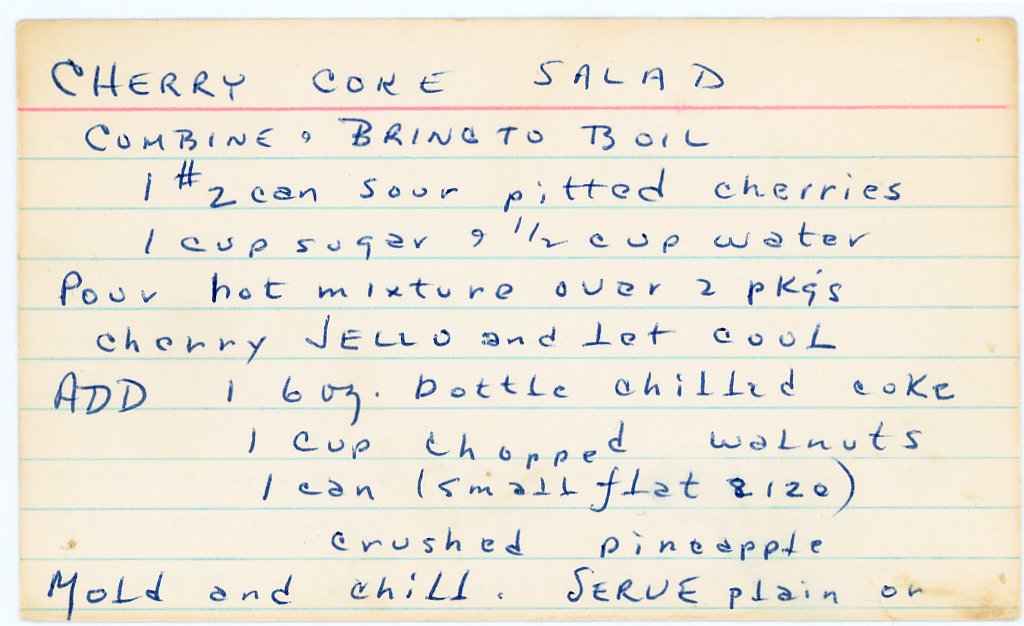 CHERRY COKE SALAD
COMBINE & BRING TO BOIL
1 #2 can sour pitted cherries
1 cup sugar & 1/2 cup water
Pour hot mixture over 2 pkg's
cherry JELLO and let cool
ADD 1 6 oz. bottle chilled coke
1 cup chopped walnuts
1 can (small flat size)
crushed pineapple
Mold and chill. SERVE plain or